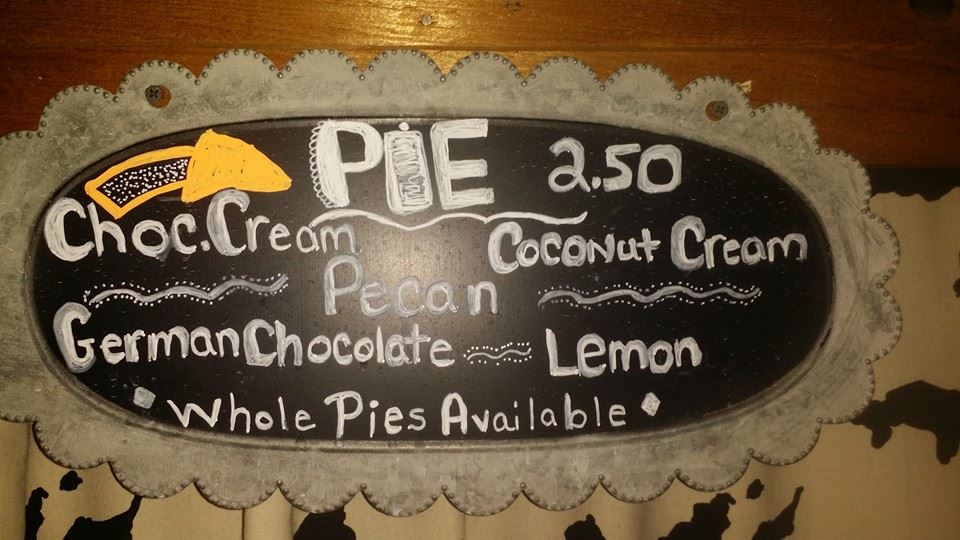 PiE 2.50
Choc. Cream Coconut Cream
Pecan
German Chocolate Lemon
Whole Pies Available